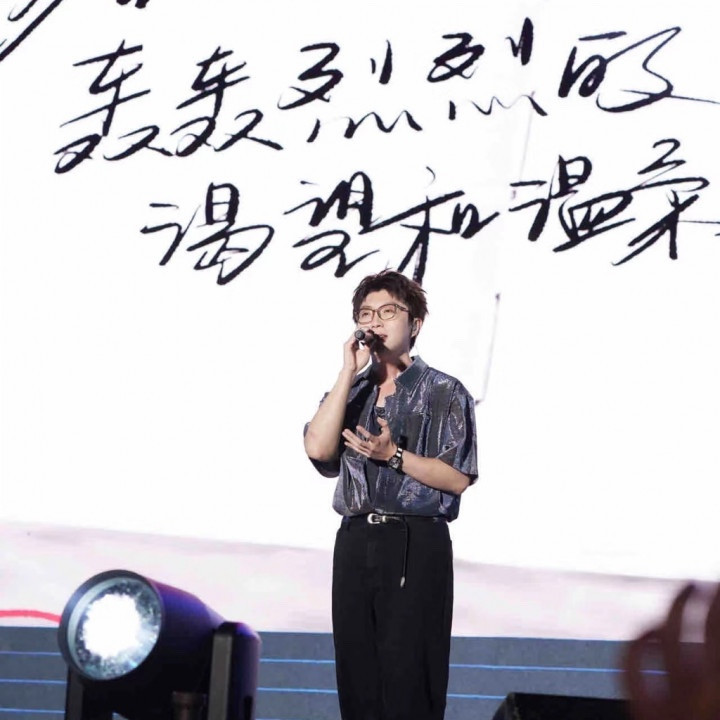 轰轰烈烈的
渴望和温柔